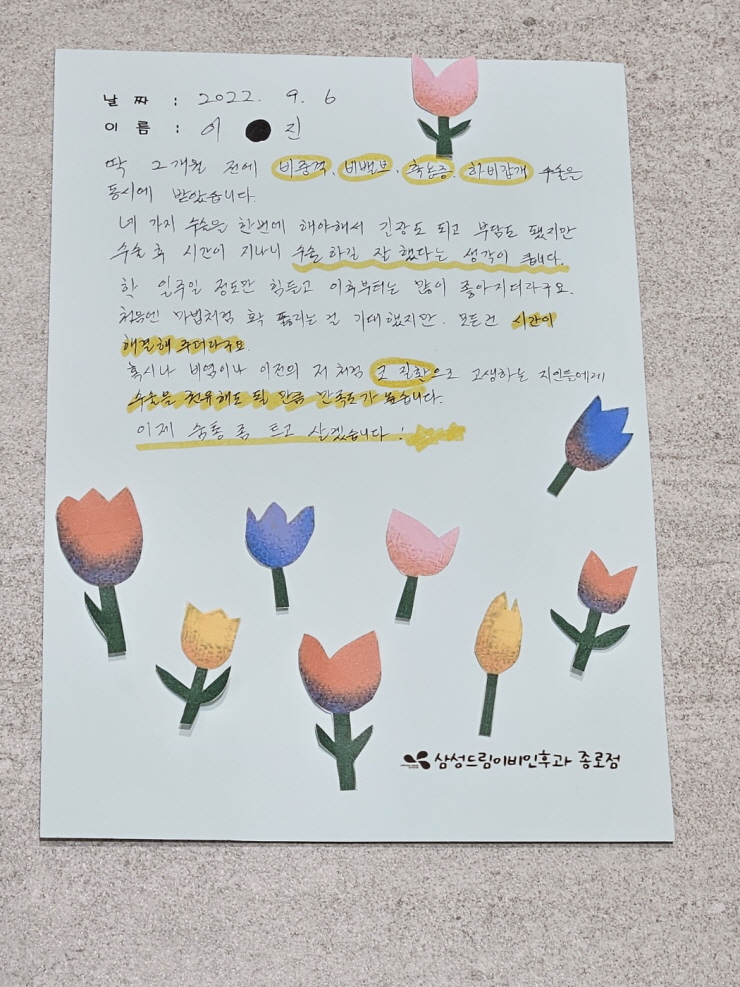 날 짜 : 2022. 9. 6
이 름 : 이 ● 진
딱 2개월 전에 비중격, 비밸브, 축농증, 하비갑개 수술을
동시에 받았습니다.
네 가지 수술을 한번에 해야해서 긴장도 되고 부담도 됐지만
수술 후 시간이 지나니 수술 하길 잘 했다는 생각이 듭니다.
한 일주일 정도만 힘들고 이후부터는 많이 좋아지더라구요.
처음엔 마법처럼 확 뚫리는 걸 기대했지만. 모든건 시간이
해결해 주더라구요.
혹시나 비염이나 이전의 저처럼 코 질환으로 고생하는 지인들에게
수술을 권유해도 될 만큼 만족도가 높습니다.
이제 숨통 좀 트고 살겠습니다!
삼성드림이비인후과 종로점